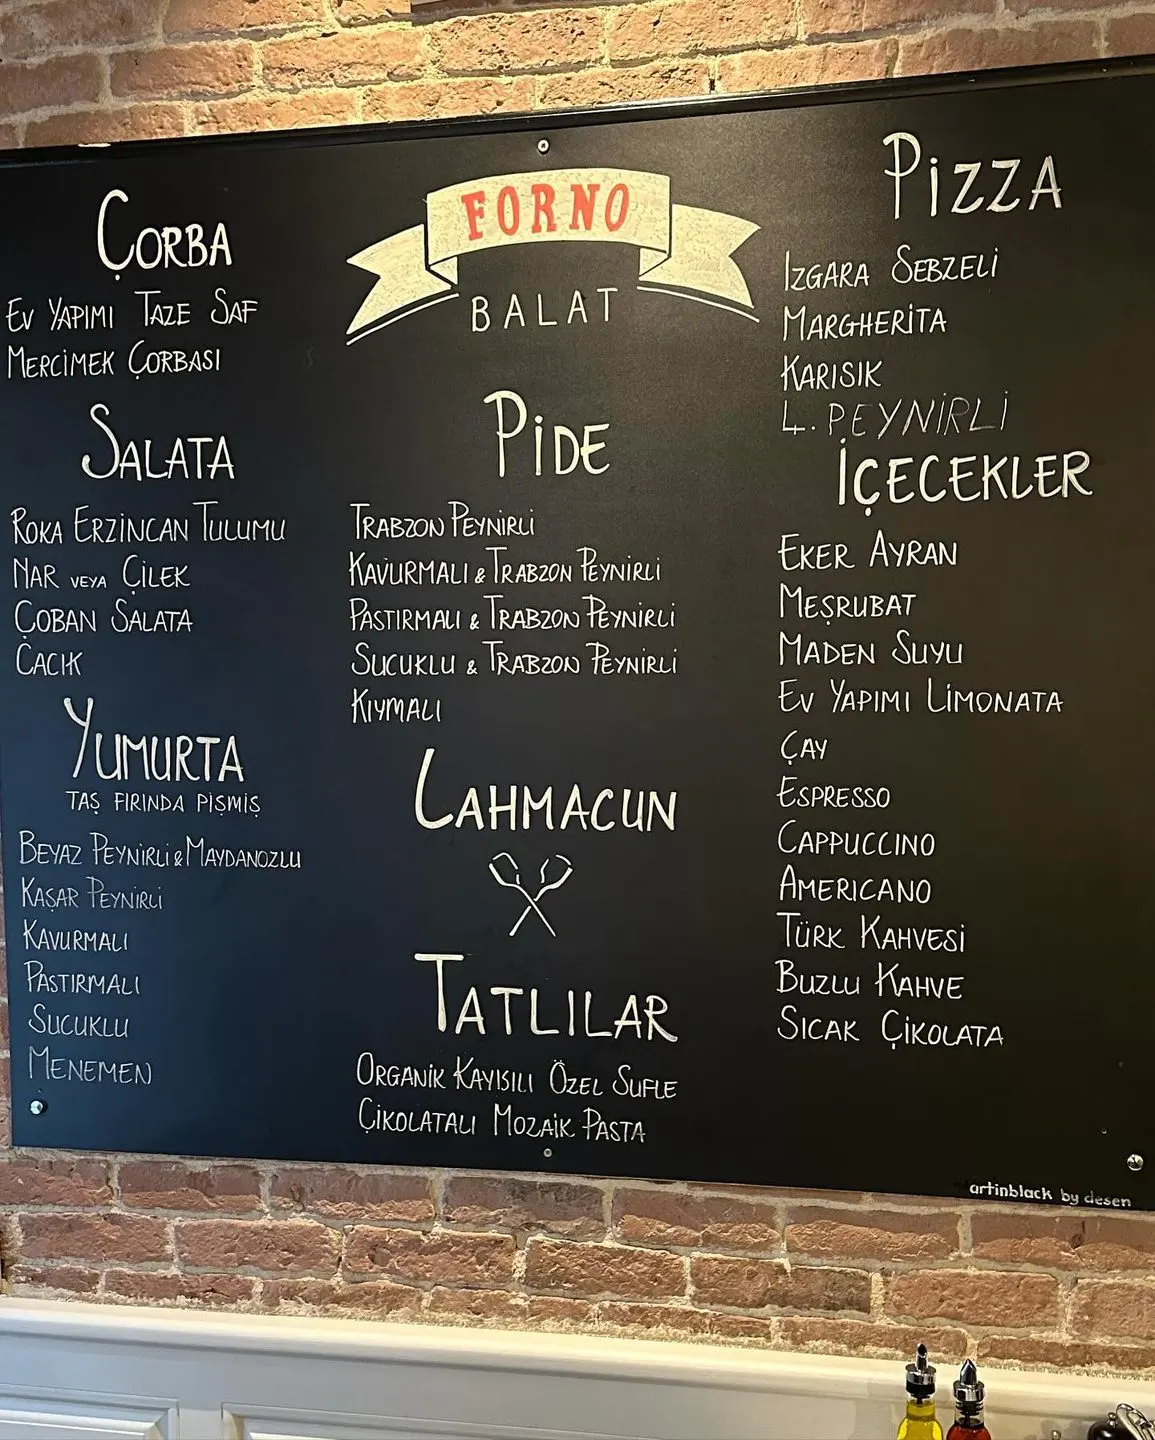 FORNO
BALAT
ÇORBA
EV YAPIMI TAZE SAF
MERCİMEK ÇORBASI
SALATA
ROKA ERZİNCAN TULUMU
NAR VEYA ÇİLEK
ÇOBAN SALATA
CACIK
YUMURTA
TAŞ FIRINDA PİŞMİŞ
BEYAZ PEYNİRLİ & MAYDANOZLU
KAŞAR PEYNİRLİ
KAVURMALI
PASTIRMALI
SUCUKLU
MENEMEN
PİDE
TRABZON PEYNİRLİ
KAVURMALI & TRABZON PEYNİRLİ
PASTIRMALI & TRABZON PEYNİRLİ
SUCUKLU & TRABZON PEYNİRLİ
KIYMALI
LAHMACUN
TATLILAR
ORGANİK KAYISILI ÖZEL SUFLE
ÇİKOLATALI MOZAİK PASTA
PİZZA
IZGARA SEBZELİ
MARGHERİTA
KARISIK
4. PEYNİRLİ
İÇECEKLER
EKER AYRAN
MEŞRUBAT
MADEN SUYU
EV YAPIMI LİMONATA
ÇAY
ESPRESSO
CAPPUCCINO
AMERICANO
TÜRK KAHVESİ
BUZLU KAHVE
SICAK ÇİKOLATA
artinblack by desen